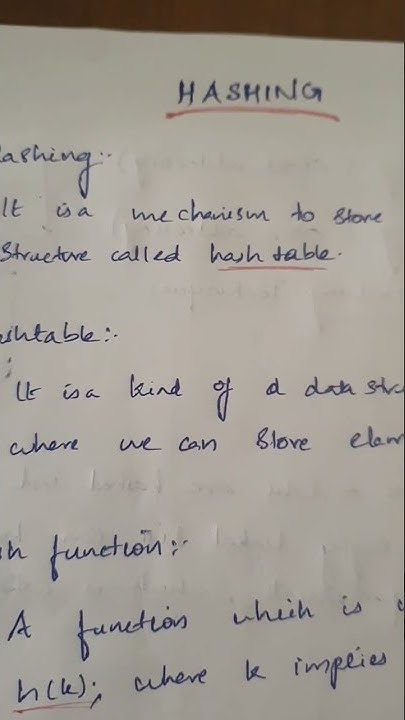 HASHING
ashing:-
It is a mechanism to store
Structure called hash table.
shtable:-
It is a kind of a data stru
where we can store elem
sh function:-
A function which is
h(k), where k implies